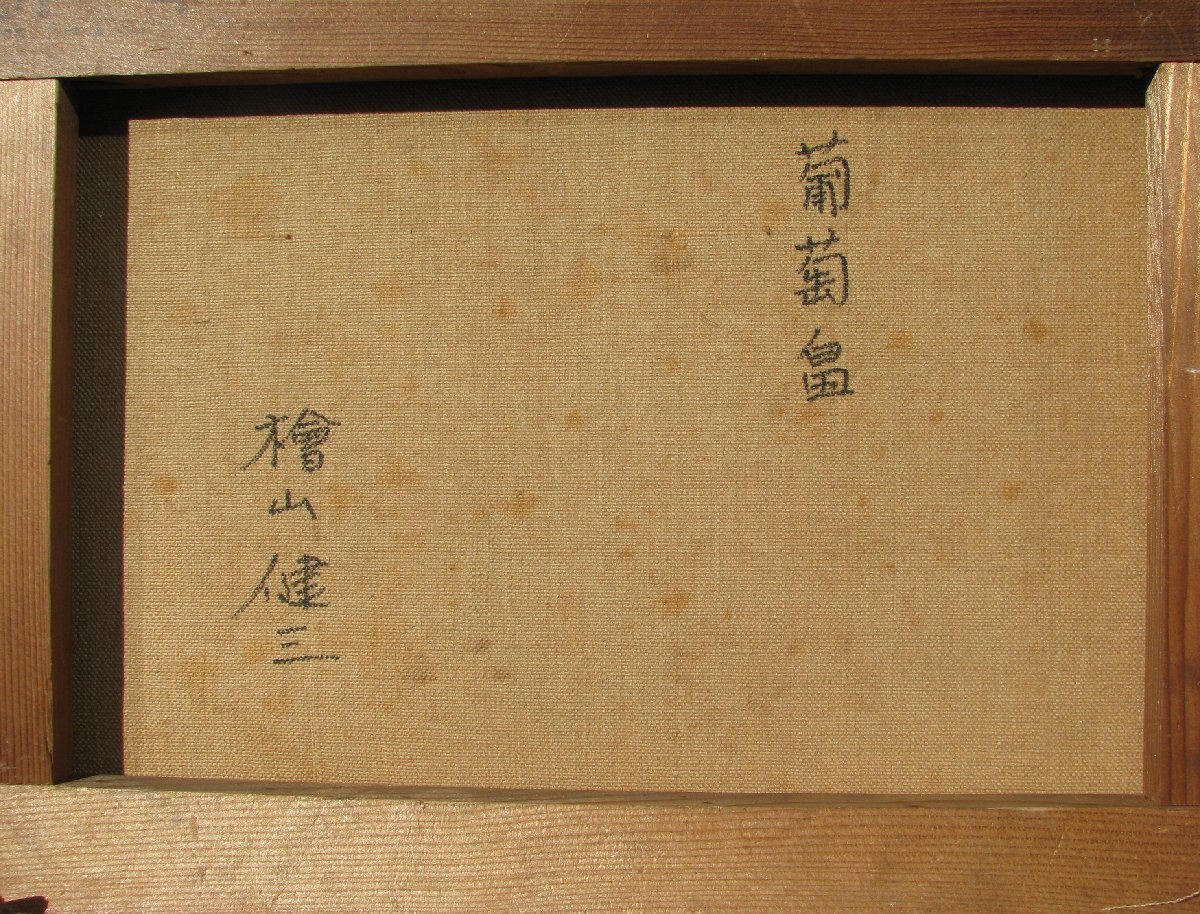 葡萄畠
檜山健三